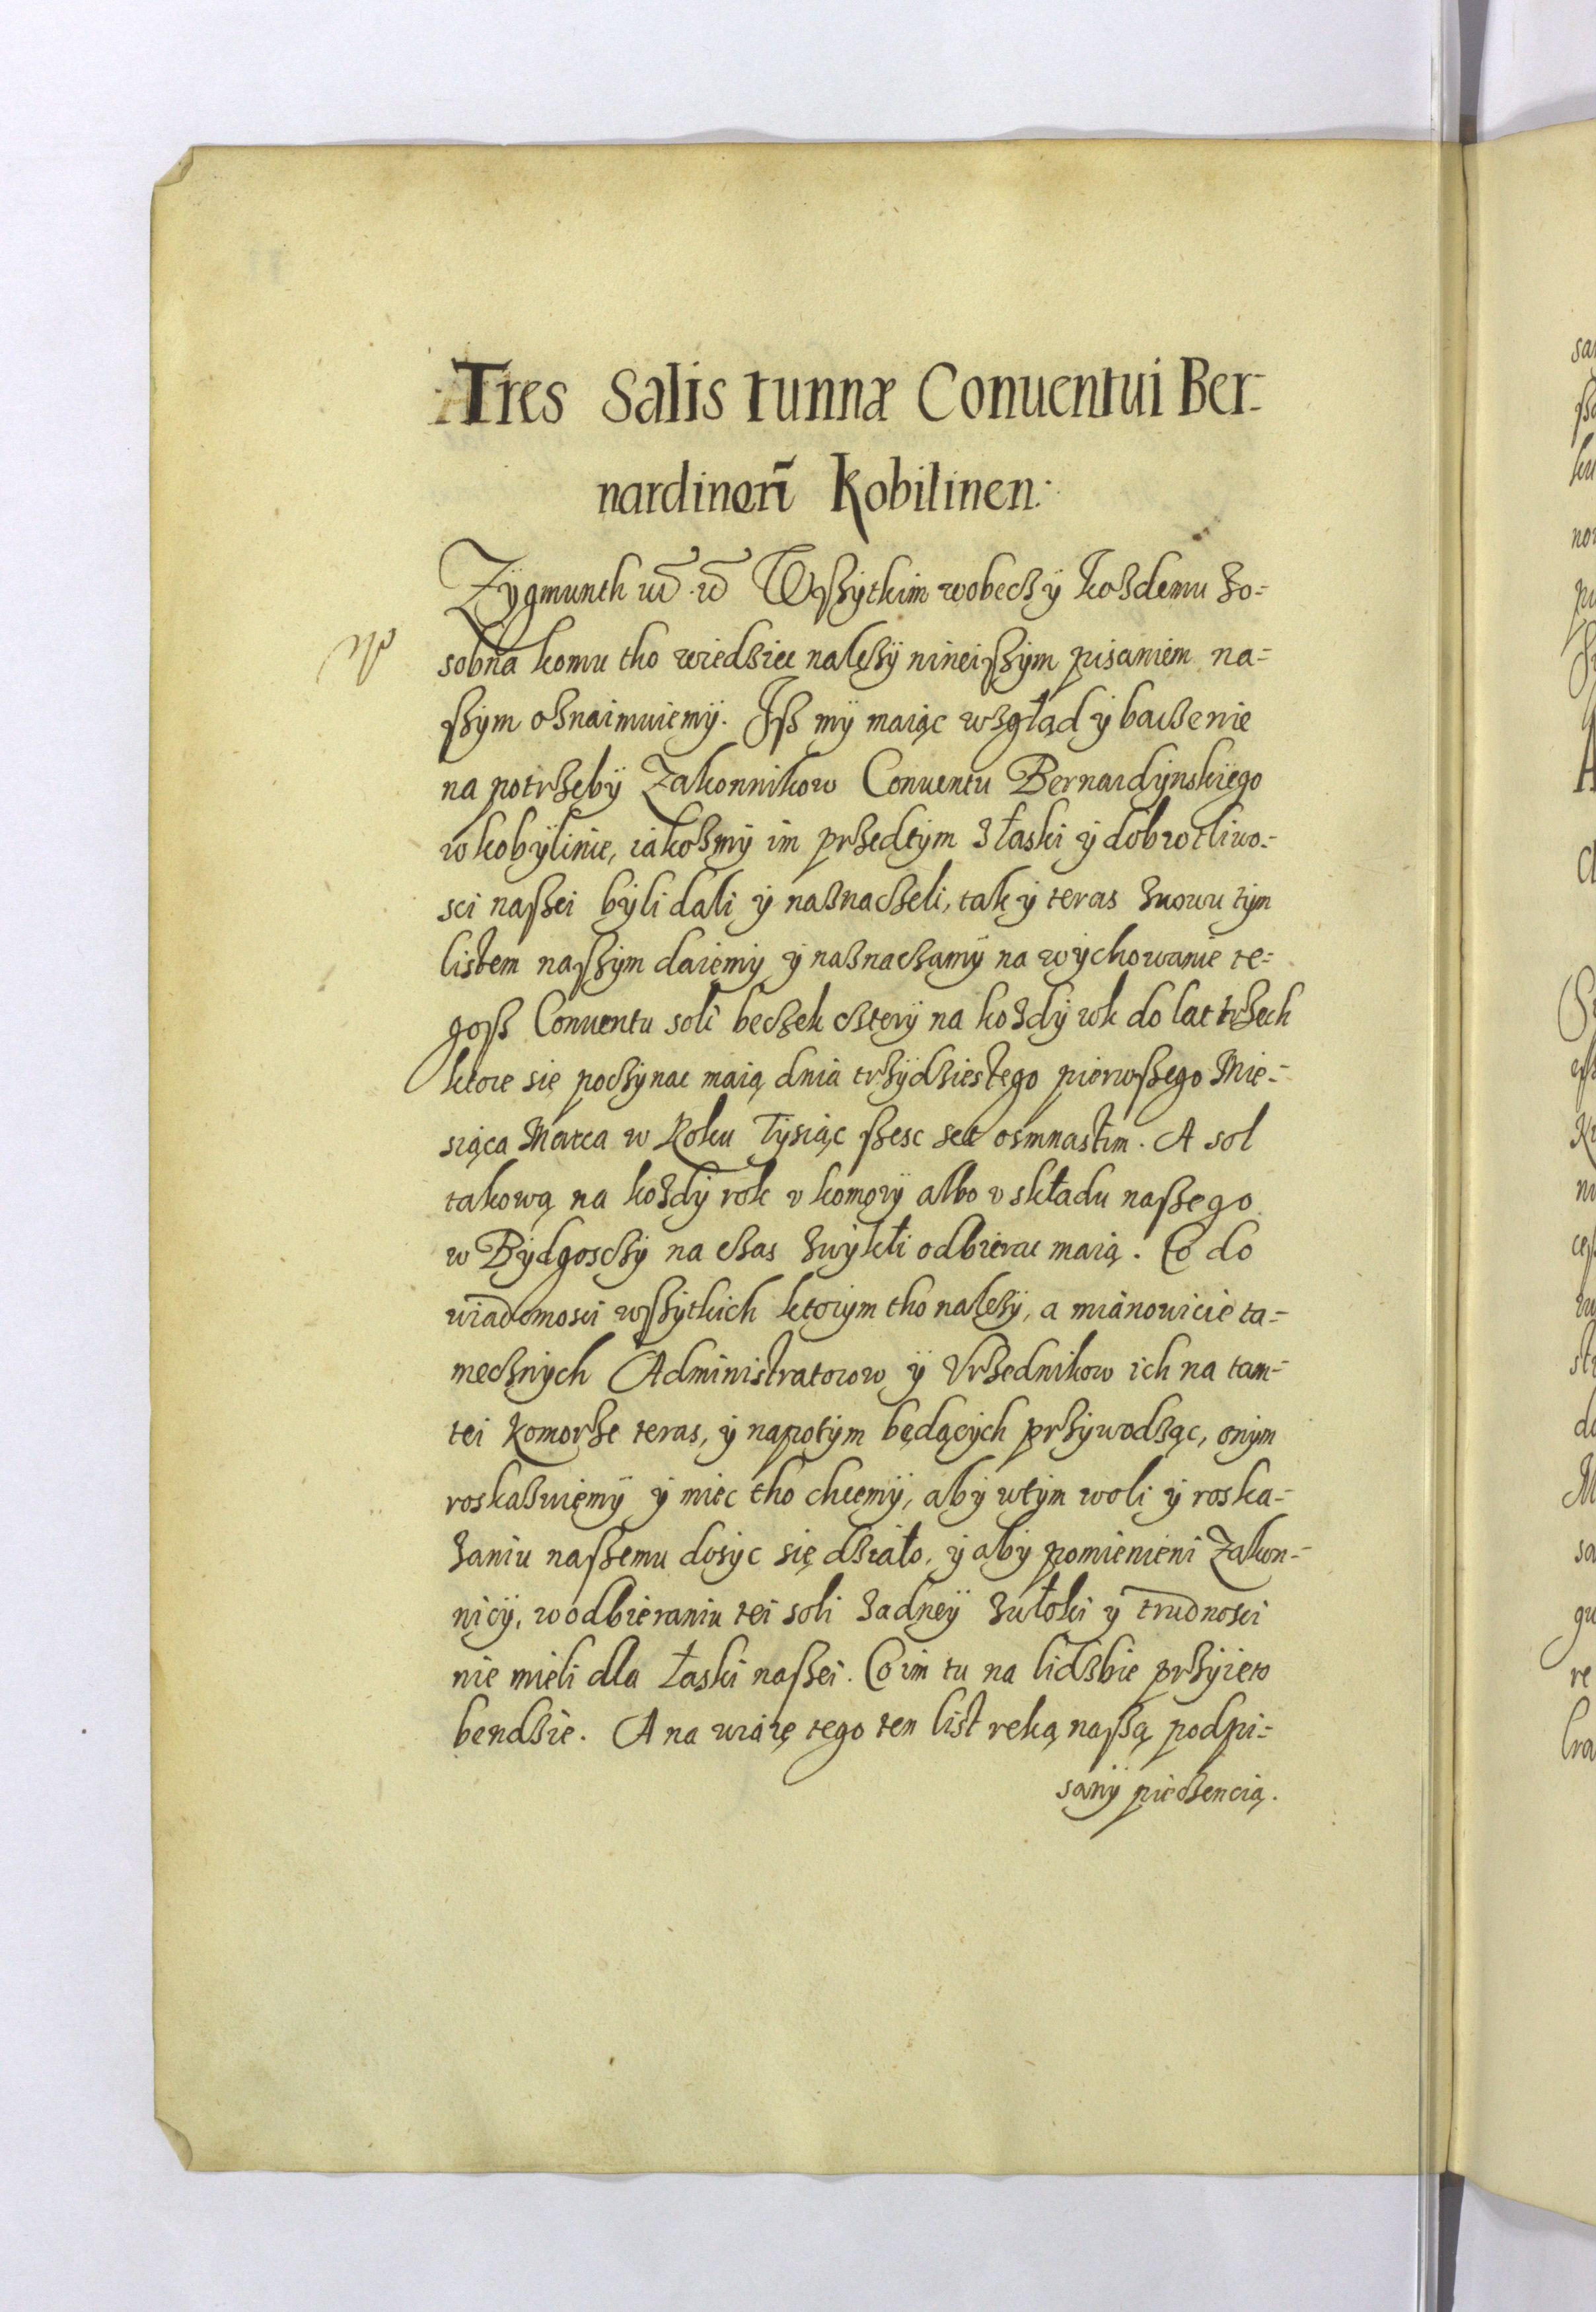 Tres Salis tunnæ Conuentui Ber-
nardinorū Kobilinen:
Zÿgmunth Wszÿtkim wobecz ÿ kozdemu zo-
sobna komu tho wiedziec nalezÿ nineiszÿm pisaniem na-
szÿm oznaimuiemÿ. Isz mÿ maiąc wzgląd ÿ baczenie
na potrzebÿ Zakonnikow Conuentu Bernardÿnskiego
w kobÿlinie, iakozmÿ im przedtÿm z łaski ÿ dobrotliwo-
sci naszei bÿli dali ÿ naznaczeli, tak ÿ teras znowu tÿm
listem naszÿm daiemÿ ÿ naznaczamÿ na wÿchowanie te-
gosz Conuentu soli beczek czterÿ na kozdÿ rok do lat trzech
ktore się poczÿnac maią dnia trzÿdziestego pierwszego Mie-
siąca Marca w Roku Tÿsiąc szesc set osmnastim. A sol
takową na kozdÿ rok v komorÿ albo v składu naszego
w Bÿdgosczÿ na czas zwÿkłi odbierac maią. Co do
wiadomosci wszÿtkich ktorÿm tho nalezÿ, a mianowicie ta-
mecznÿch Administratorow ÿ Vrzednikow ich na tam-
tei Komorze teras, ÿ napotÿm będącÿch przÿwodząc, onÿm
roskazuiemÿ ÿ miec tho chcemÿ, abÿ wtÿm woli ÿ roska-
zaniu naszemu dosÿc się działo, ÿ abÿ pomienieni Zakon-
nicÿ, w odbieraniu tei soli zadneÿ zwłoki ÿ trudnosci
nie mieli dla łaski naszei. Co im tu na lidzbie przÿięto
bendzie. A na wiarę tego ten list reką naszą podpi-
sanÿ pieczencią.